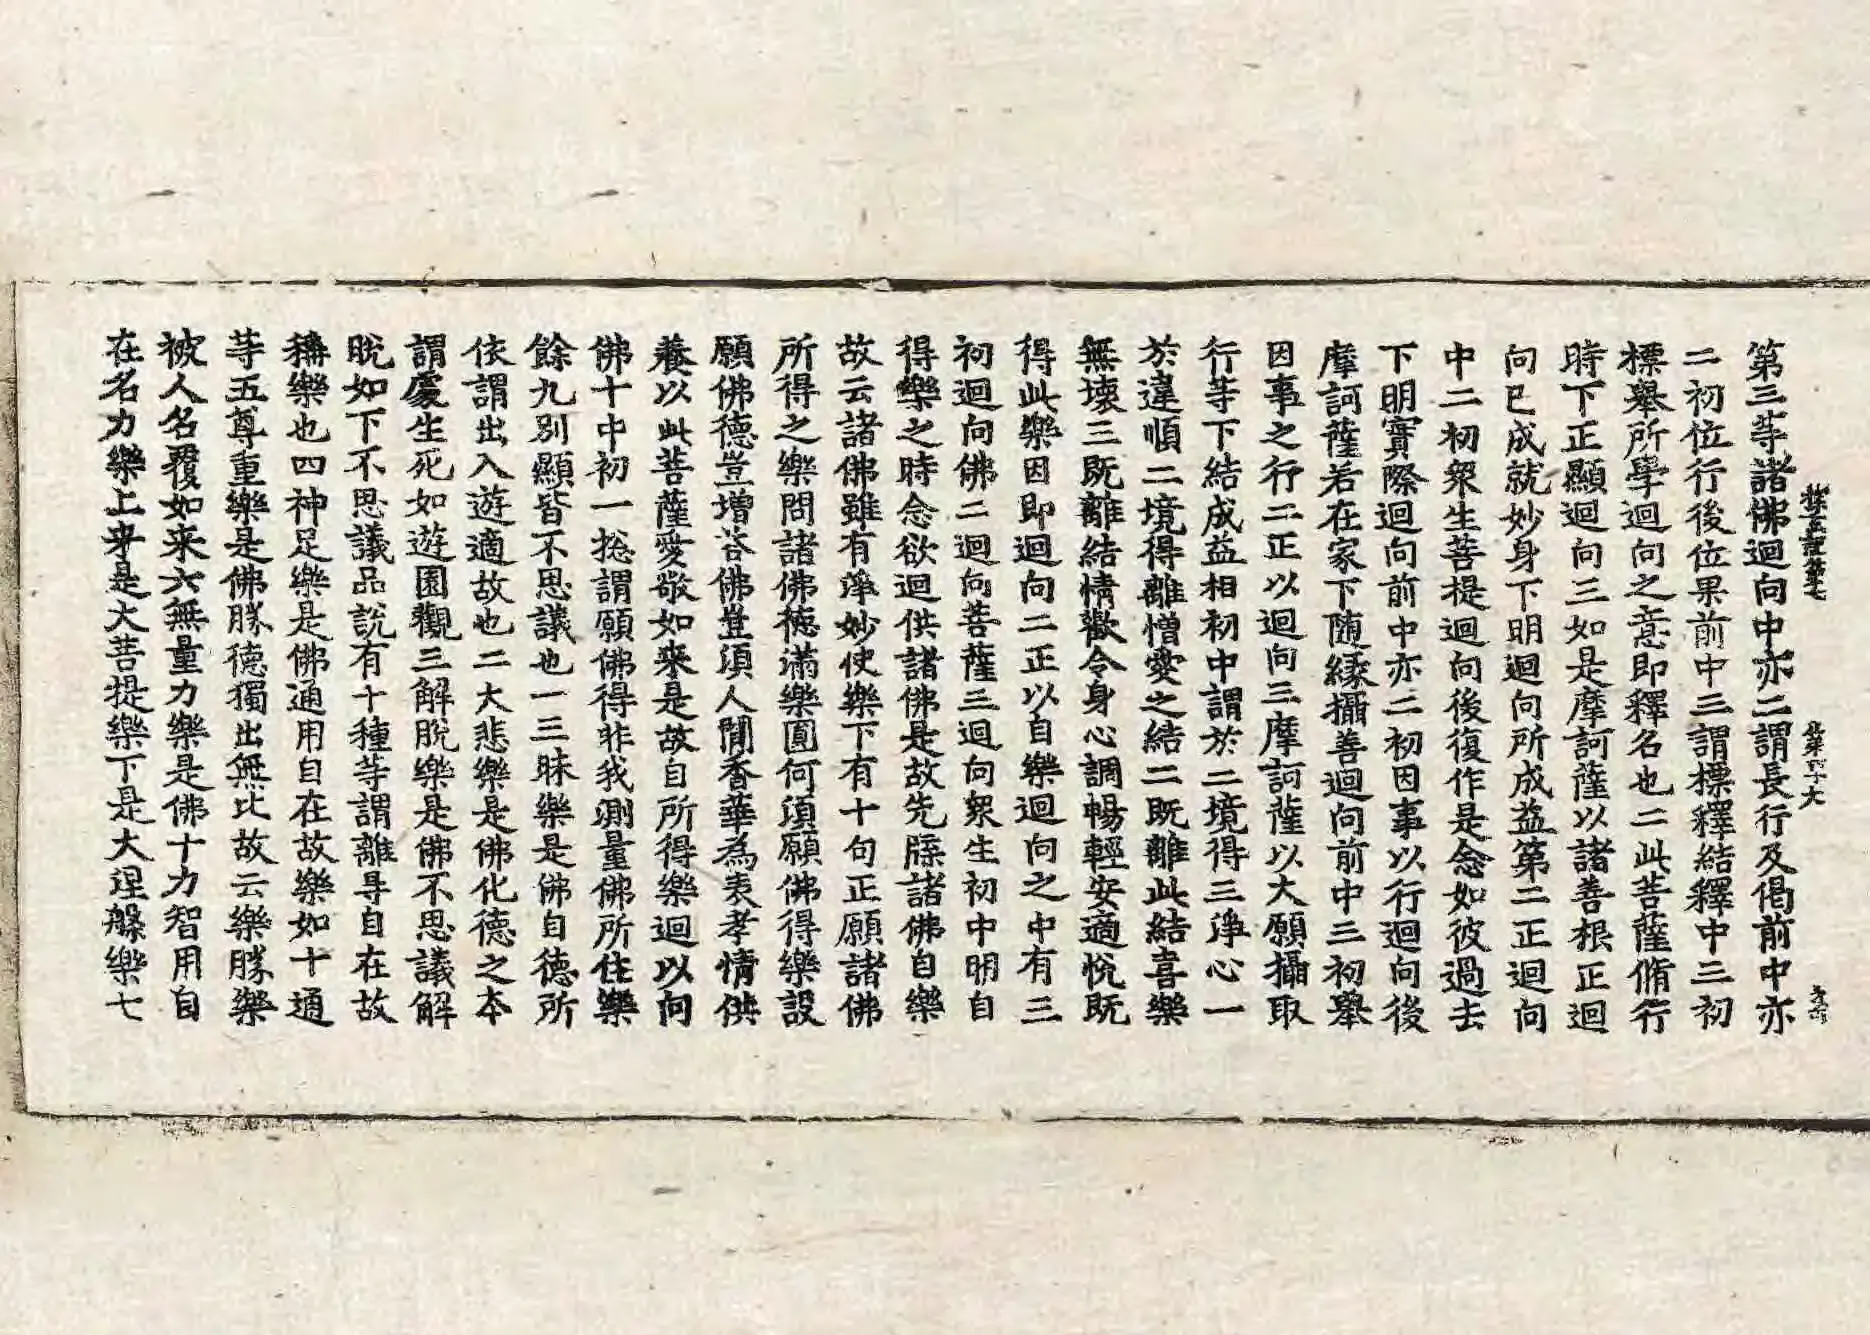 第三等諸佛迴向中亦二謂長行及偈前中亦
二初位行後位果前中三謂標釋結釋中三初
標舉所學迴向之意即釋名也二此菩薩脩行
時下正顯迴向三如是摩訶薩以諸善根正迴
向已成就妙身下明迴向所成益第二正迴向
中二初衆生菩提迴向後復作是念如彼過去
下明實際迴向前中亦二初因事以行迴向後
摩訶薩若在家下随緣攝善迴向前中三初舉
因事之行二正以迴向三摩訶薩以大願攝取
行等下結成益相初中謂於二境得三淨心一
於違順二境得離憎愛之結二既離此結喜樂
無壞三既離結情歡令身心調暢輕安適悅既
得此樂因即迴向二正以自樂迴向之中有三
初迴向佛二迴向菩薩三迴向衆生初中明自
得樂之時念欲迴供諸佛是故先牒諸佛自樂
故云諸佛雖有淨妙使樂下有十句正願諸佛
所得之樂問諸佛德滿樂圓何須願佛得樂設
願佛德豈增荅佛豈須人間香華為表孝情供
養以此菩薩愛敬如來是故自所得樂迴以向
佛十中初一捴謂願佛得非我測量佛所住樂
餘九別顯皆不思議也一三昧樂是佛自德所
依謂出入遊適故也二大悲樂是佛化德之本
謂處生死如遊園觀三解脫樂是佛不思議解
脫如下不思議品說有十種等謂離㝵自在故
稱樂也四神足樂是佛通用自在故樂如十通
等五尊重樂是佛勝德獨出無比故云樂勝樂
被人名覆如来六無量力樂是佛十力智用自
在名力樂上来是大菩提樂下是大涅槃樂七